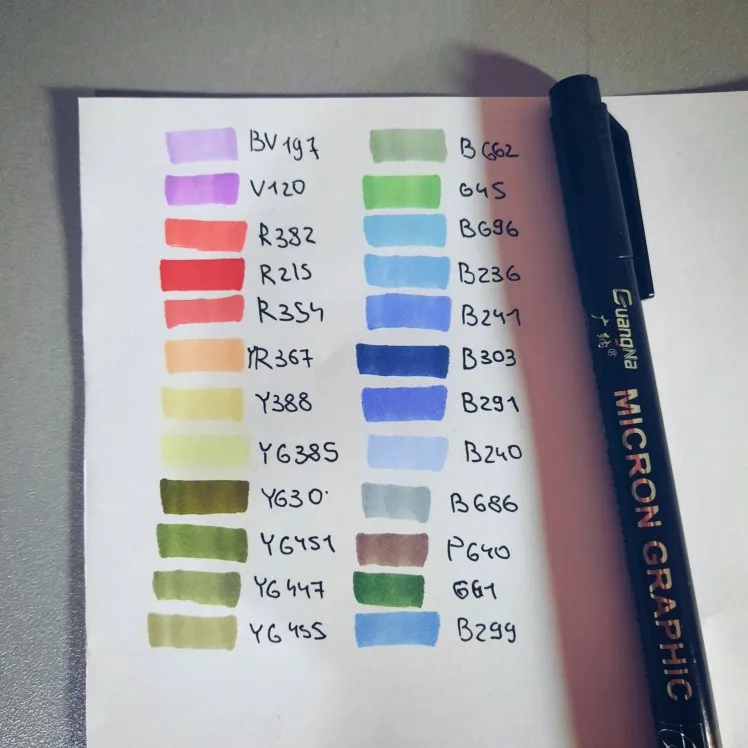 BV197
V120
R382
R215
R354
YR367
Y388
YG385
YG30
YG451
YG447
YG455
BG62
G45
BG96
B236
B241
B303
B291
B240
BG86
PG40
G61
B299
GuangNa
MICRON GRAPHIC